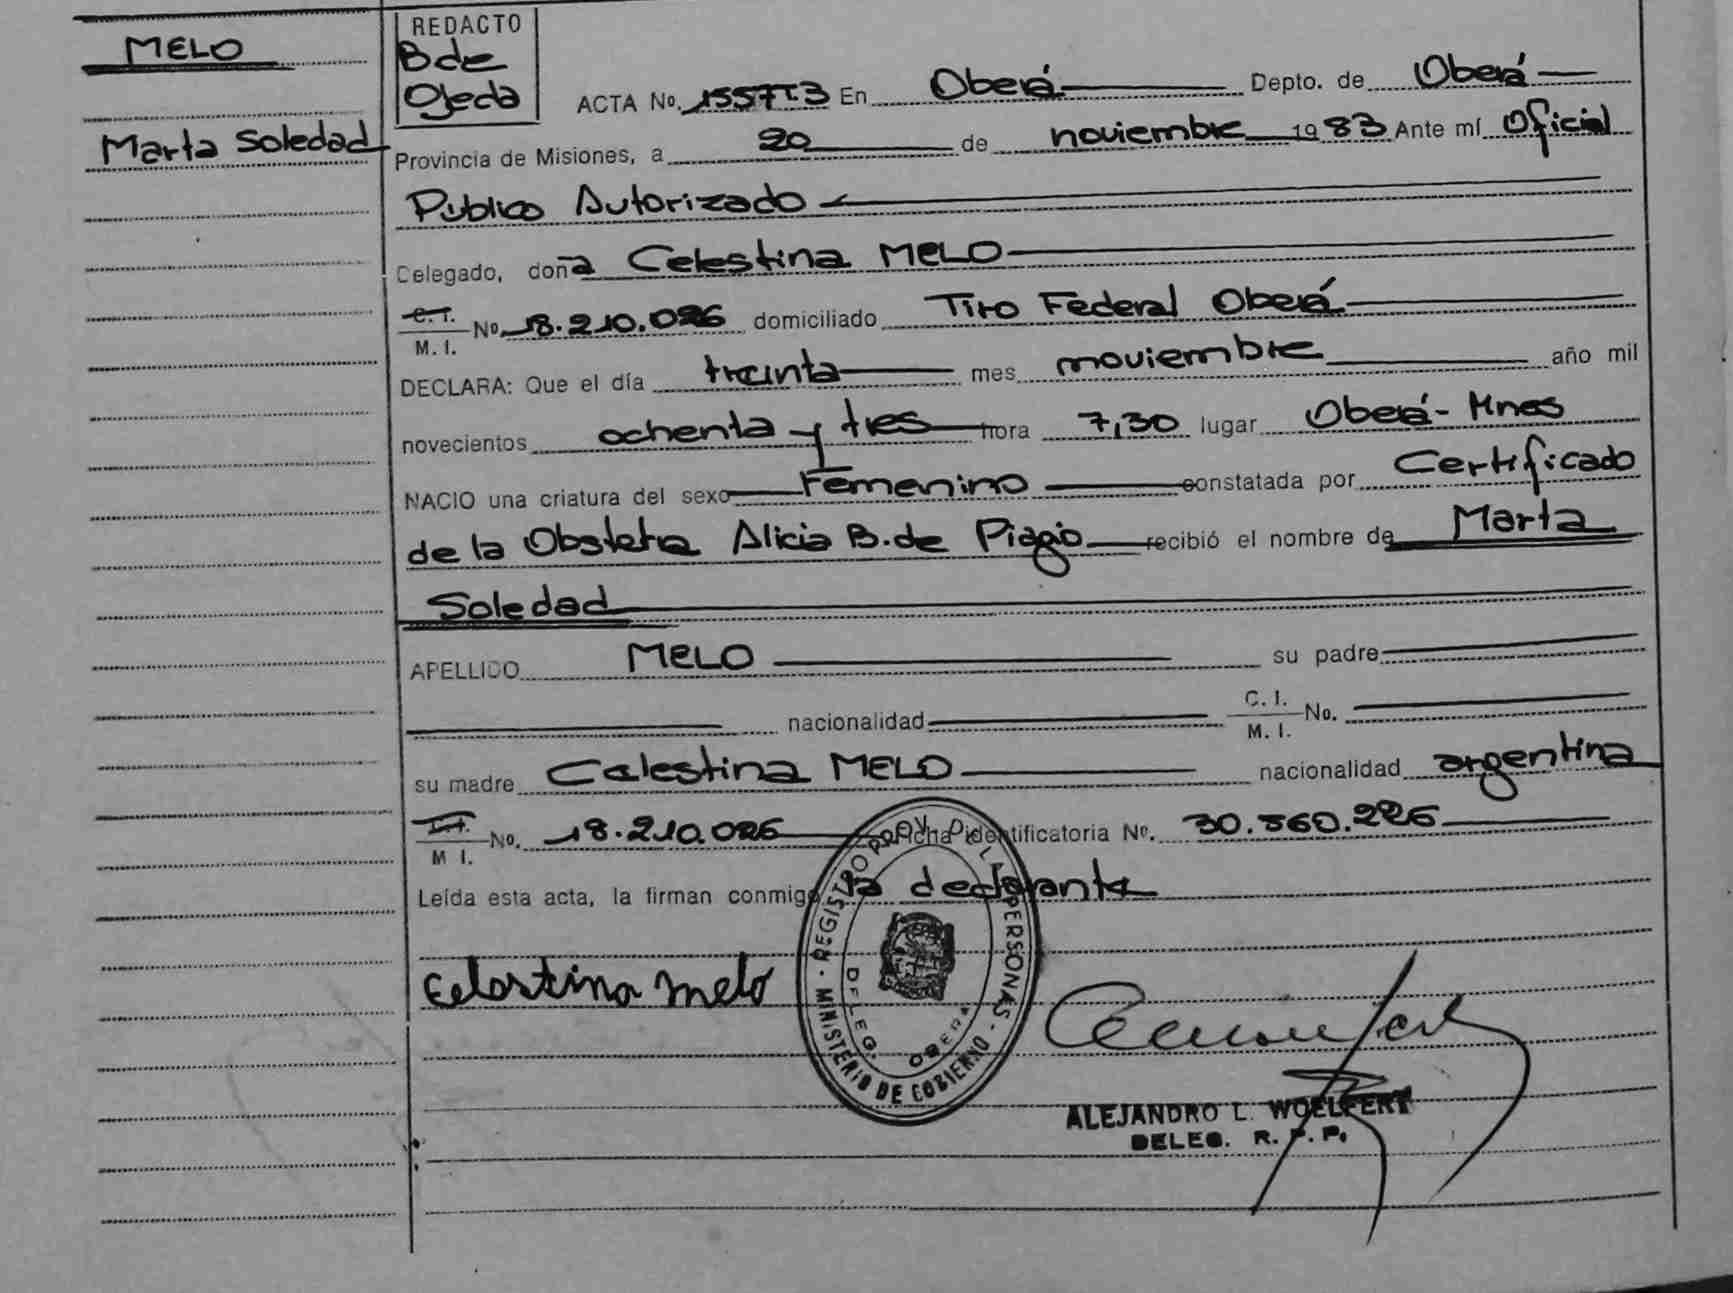 MELO
Marta Soledad
REDACTO
B de
Ojeda
ACTA No. 1557T3 En Oberá Depto. de Oberá
Provincia de Misiones, a 20 de noviembre 1983 Ante mí Oficial
Público Autorizado
Delegado, doña Celestina MELO
C.I. M. I. No. 18.210.026 domiciliado Tiro Federal Oberá
DECLARA: Que el día treinta mes noviembre año mil
novecientos ochenta y tres hora 7,30 lugar Oberá - Mnes
NACIO una criatura del sexo Femenino constatada por Certificado
de la Obstetra Alicia B. de Piagio recibió el nombre de Marta
Soledad
APELLIDO MELO su padre
nacionalidad C. I. M. I. No.
su madre Celestina MELO nacionalidad argentina
M I. No. 18.210.026 Ficha identificatoria No. 30.560.226
Leída esta acta, la firman conmigo la declarante
Celestina Melo
REGISTRO PROV. DE LAS PERSONAS - MINISTERIO DE GOBIERNO -
DELEG. OBERA
ALEJANDRO L. WOELFERT
DELEG. R. P. P.